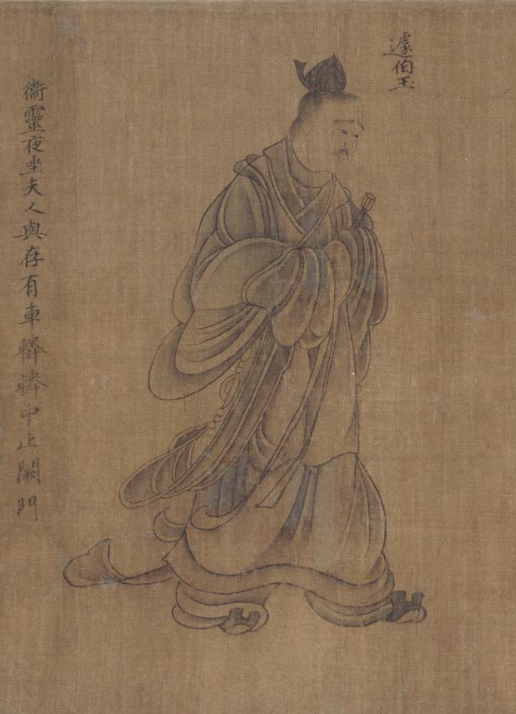 蘧伯玉
衞靈夜坐夫人與存有車轔轔中止闕門